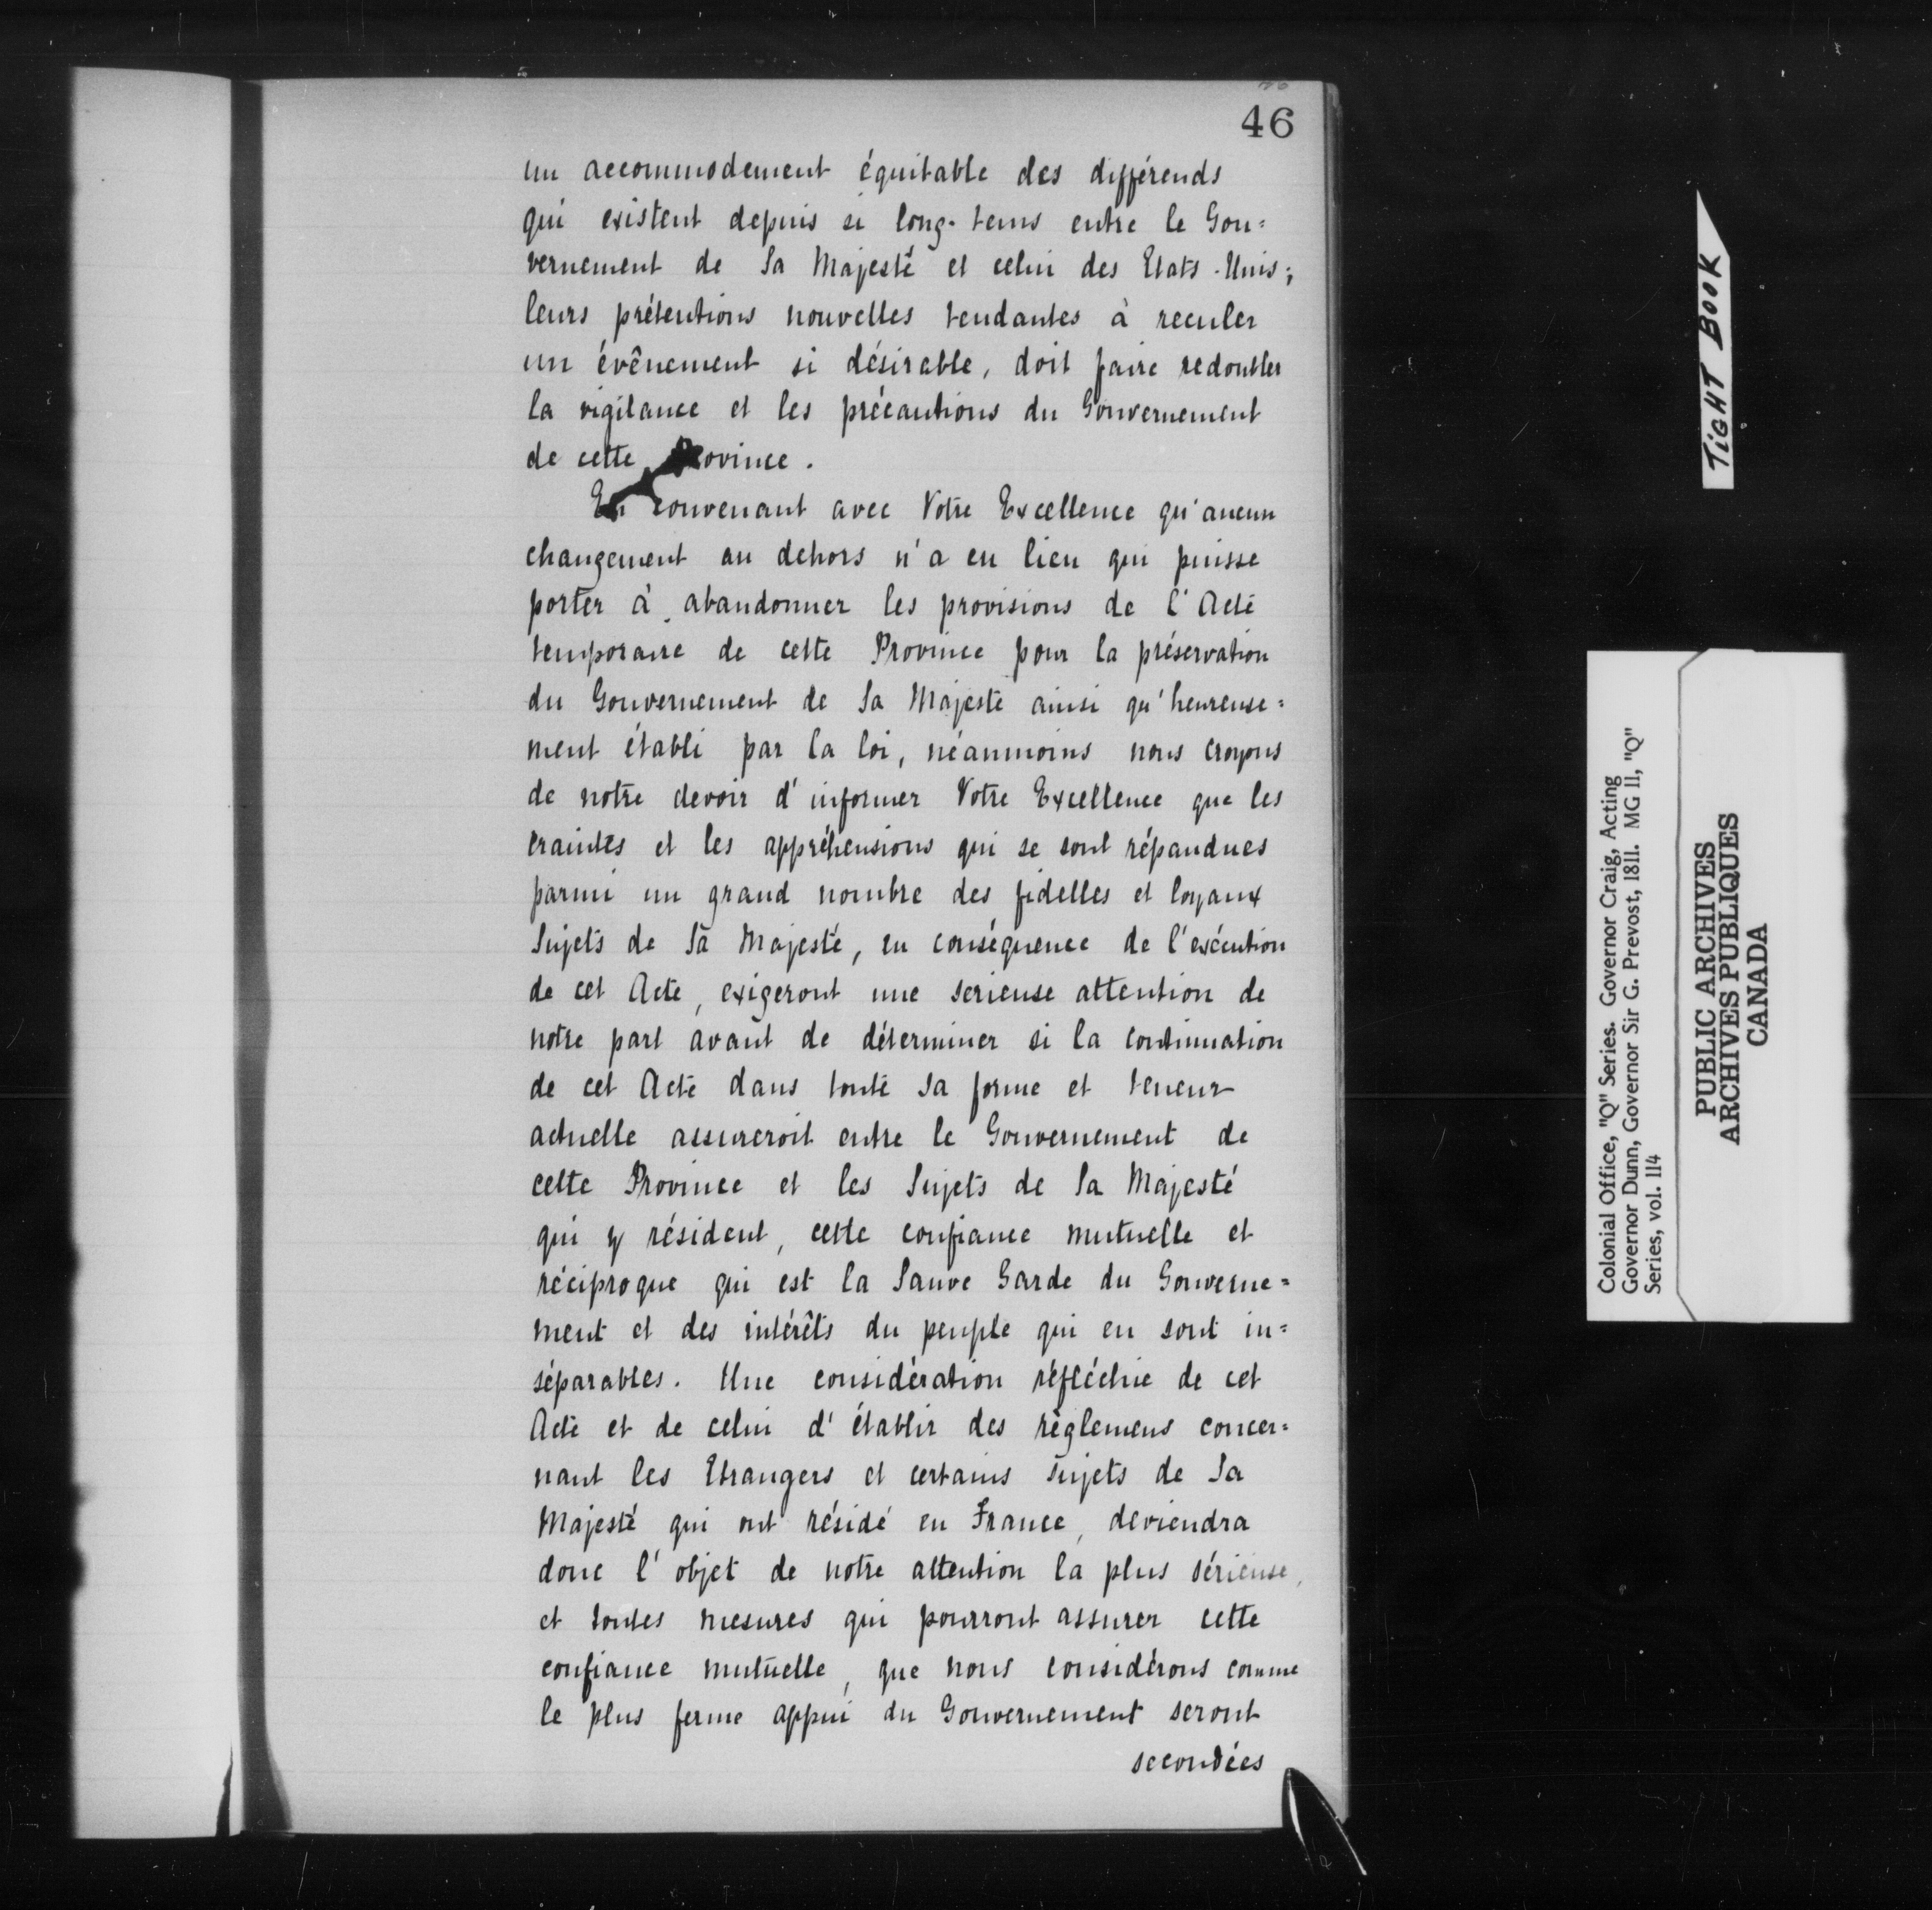 46
un accommodement équitable des différends
qui existent depuis si long-tems entre le Gou=
vernement de Sa Majesté et celui des Etats-Unis;
leurs prétentions nouvelles tendantes à reculer
un évênement si désirable, doit faire redoubler
la vigilance et les précautions du Gouvernement
de cette Province.
En convenant avec Votre Excellence qu'aucun
changement au dehors n'a eu lieu qui puisse
porter à abandonner les provisions de l'Acte
temporaire de cette Province pour la préservation
du Gouvernement de Sa Majesté ainsi qu'heureuse=
ment établi par la loi, néanmoins nous croyons
de notre devoir d'informer Votre Excellence que les
craintes et les appréhensions qui se sont répandues
parmi un grand nombre des fidelles et loyaux
Sujets de Sa Majesté, en conséquence de l'exécution
de cet Acte, exigeront une serieuse attention de
notre part avant de déterminer si la continuation
de cet Acte dans toute sa forme et teneur
actuelle assureroit entre le Gouvernement de
cette Province et les Sujets de Sa Majesté
qui y résident, cette confiance mutuelle et
réciproque qui est la Sauve Garde du Gouverne=
ment et des intérêts du peuple qui en sont in=
séparables. Une considération réfléchie de cet
Acte et de celui d'établir des règlemens concer=
nant les Etrangers et certains Sujets de Sa
Majesté qui ont résidé en France, deviendra
donc l'objet de notre attention la plus sérieuse,
et toutes mesures qui pourront assurer cette
confiance mutuelle, que nous considérons comme
le plus ferme appui du Gouvernement seront
secondées
TIGHT BOOK
Colonial Office, "Q" Series. Governor Craig, Acting
Governor Dunn, Governor Sir G. Prevost, 1811. MG 11, "Q"
Series, vol. 114
PUBLIC ARCHIVES
ARCHIVES PUBLIQUES
CANADA